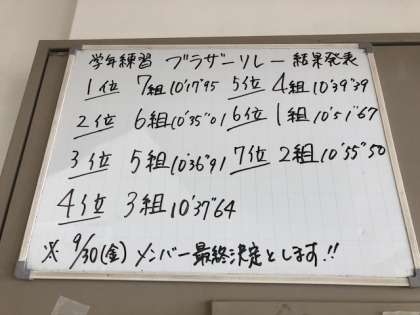 学年練習 ブラザーリレー 結果発表
1位 7組 10'17"95 5位 4組 10'39"39
2位 6組 10'35"01 6位 1組 10'51"67
3位 5組 10'36"91 7位 2組 10'55"50
4位 3組 10'37"64
※ 9/30(金) メンバー最終決定とします!!